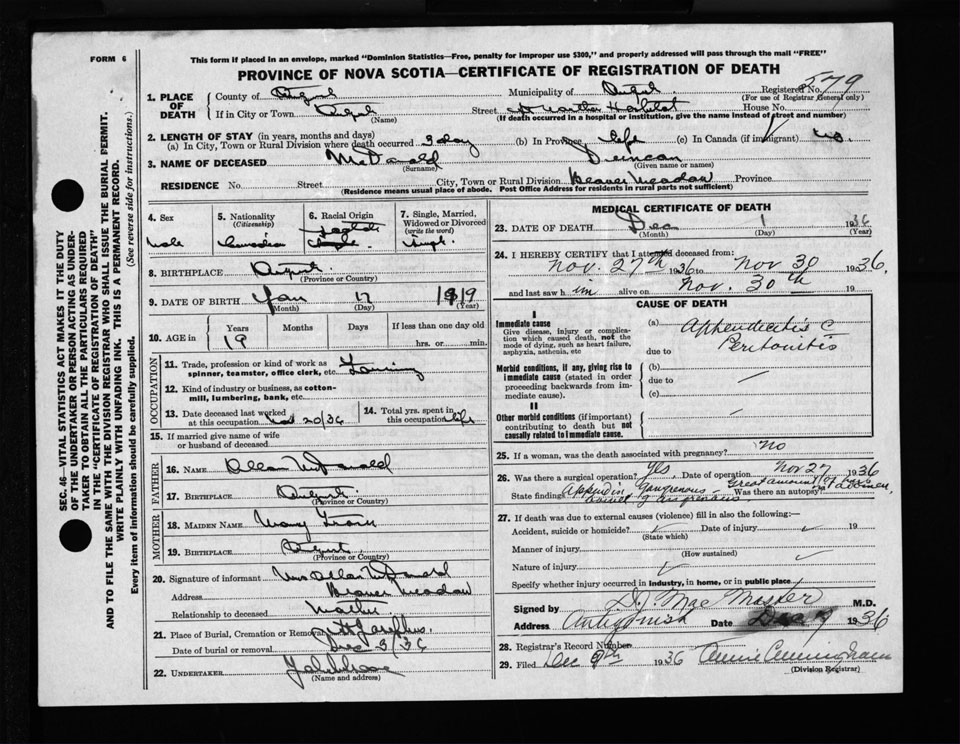 FORM 6
This form if placed in an envelope, marked "Dominion Statistics—Free, penalty for improper use $300," and properly addressed will pass through the mail "FREE"
PROVINCE OF NOVA SCOTIA—CERTIFICATE OF REGISTRATION OF DEATH
SEC. 46—VITAL STATISTICS ACT MAKES IT THE DUTY
OF THE UNDERTAKER OR PERSON ACTING AS UNDER-
TAKER TO OBTAIN ALL THE PARTICULARS REQUIRED
IN THE "CERTIFICATE OF REGISTRATION OF DEATH"
AND TO FILE THE SAME WITH THE DIVISION REGISTRAR WHO SHALL ISSUE THE BURIAL PERMIT.
WRITE PLAINLY WITH UNFADING INK. THIS IS A PERMANENT RECORD.
Every item of Information should be carefully supplied. (See reverse side for instructions.)
1. PLACE OF DEATH County of Municipality of Registered No. 579
(For use of Registrar General only)
If in City or Town Street St Martha Hospital House No.
(Name) (If death occurred in a hospital or institution, give the name instead of street and number)
2. LENGTH OF STAY (in years, months and days)
(a) In City, Town or Rural Division where death occurred 3 day (b) In Province life (c) In Canada (if immigrant)
3. NAME OF DECEASED McDonald Duncan
(Surname) (Given name or names)
RESIDENCE No. Street City, Town or Rural Division Beaver Meadow Province
(Residence means usual place of abode. Post Office Address for residents in rural parts not sufficient)
4. Sex 5. Nationality (Citizenship) 6. Racial Origin 7. Single, Married, Widowed or Divorced (write the word)
male Canadian Scotch Single
8. BIRTHPLACE
(Province or Country)
9. DATE OF BIRTH Jan 17 1919
(Month) (Day) (Year)
10. AGE in Years Months Days If less than one day old
19 hrs. or min.
OCCUPATION
11. Trade, profession or kind of work as spinner, teamster, office clerk, etc. Farming
12. Kind of industry or business, as cotton-mill, lumbering, bank, etc.
13. Date deceased last worked at this occupation 20/36 14. Total yrs. spent in this occupation life
15. If married give name of wife or husband of deceased
FATHER
16. NAME Allan McDonald
17. BIRTHPLACE
(Province or Country)
MOTHER
18. MAIDEN NAME Mary
19. BIRTHPLACE
(Province or Country)
20. Signature of informant Mrs Allan McDonald
Address Beaver Meadow
Relationship to deceased Mother
21. Place of Burial, Cremation or Removal St Josephs
Date of burial or removal Dec 3/36
22. UNDERTAKER
(Name and address)
MEDICAL CERTIFICATE OF DEATH
23. DATE OF DEATH Dec 1 1936
(Month) (Day) (Year)
24. I HEREBY CERTIFY that I attended deceased from:
Nov. 27th 1936 to Nov 30 1936.
and last saw h im alive on Nov. 30th 19
CAUSE OF DEATH
I
Immediate cause (a) Appendicitis C
Give disease, injury or complication which caused death, not the mode of dying, such as heart failure, asphyxia, asthenia, etc due to Peritonitis
Morbid conditions, if any, giving rise to immediate cause (stated in order proceeding backwards from immediate cause). (b)
due to
(c)
II
Other morbid conditions (if important) contributing to death but not causally related to immediate cause.
25. If a woman, was the death associated with pregnancy? no
26. Was there a surgical operation? Yes Date of operation Nov 27 1936
State findings Appendix Gangrenous Great amount of Was there an autopsy?
27. If death was due to external causes (violence) fill in also the following:—
Accident, suicide or homicide? Date of injury 19
(State which)
Manner of injury
(How sustained)
Nature of injury
Specify whether injury occurred in industry, in home, or in public place
Signed by MacMaster M.D.
Address Antigonish Date Dec 9 1936
28. Registrar's Record Number
29. Filed Dec 9th 1936 Annie Cunningham
(Division Registrar)